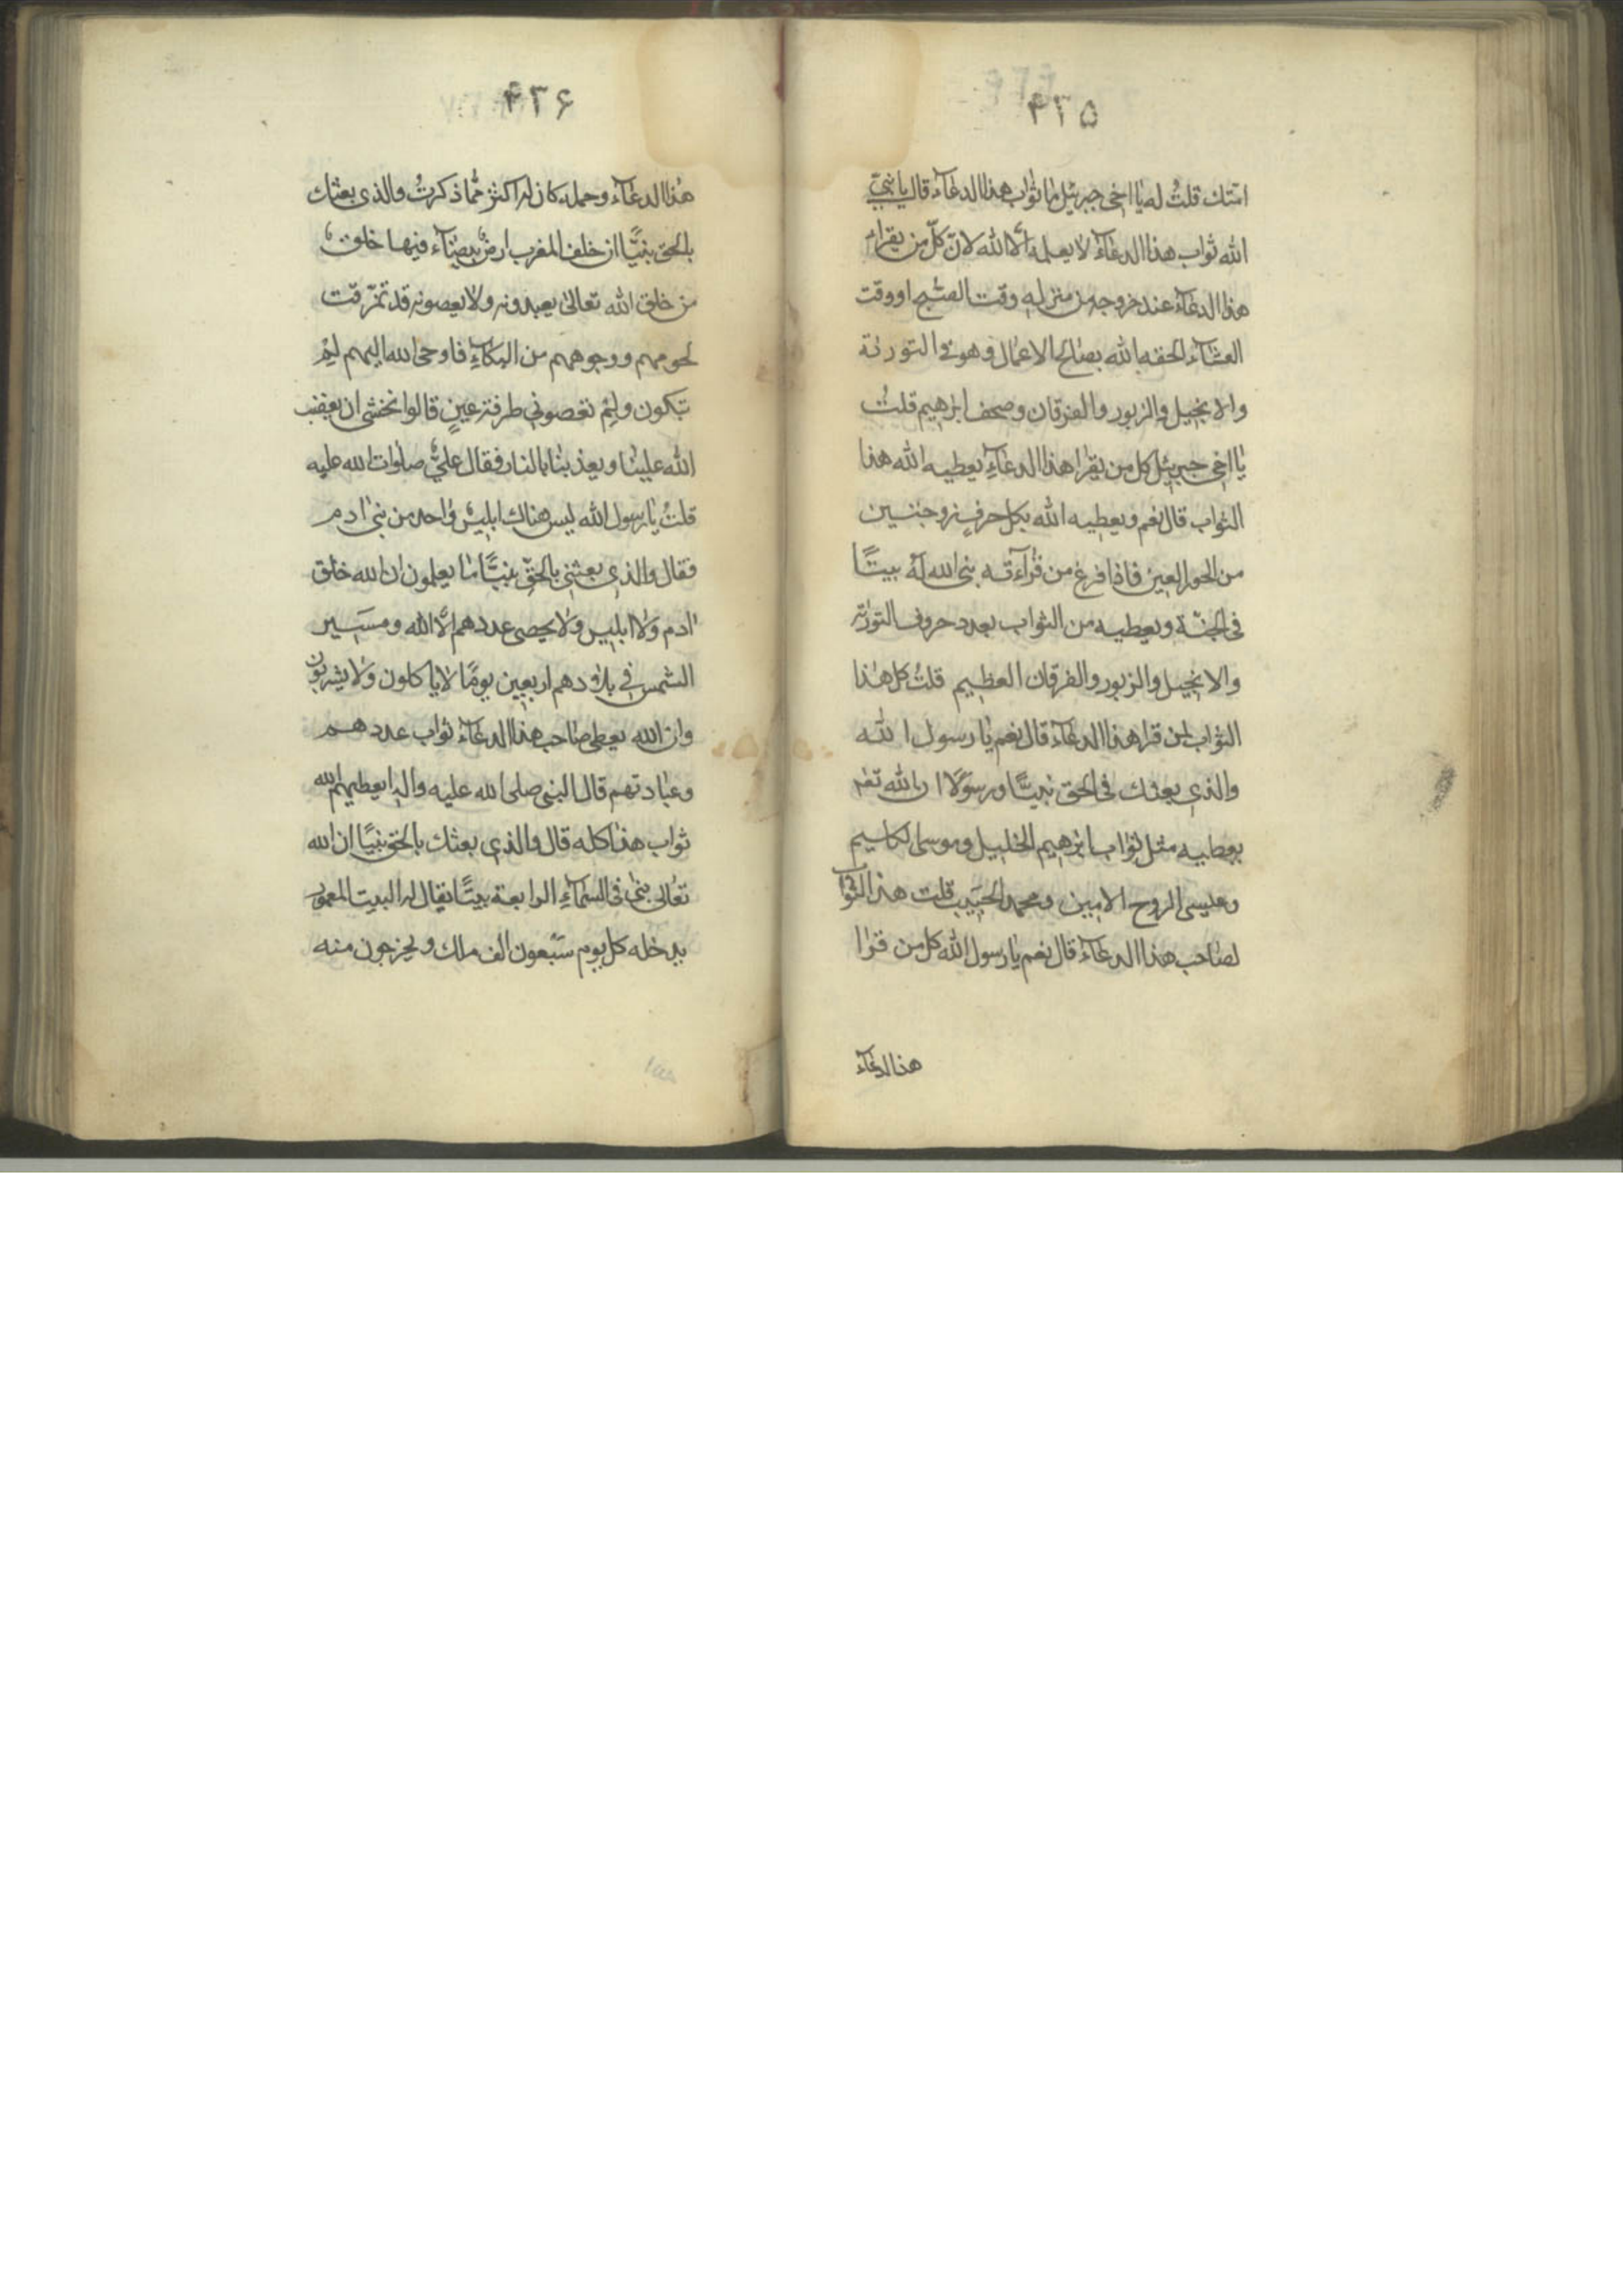 ۴۳۵
امتك قلتُ له يا اخى جبرئيل ما ثواب هذا الدعآء قال يا نبىّ
الله ثواب هذا الدعآء لا يعلمه الّا الله لانّ كلّ من يقرا
هذا الدعآء عند خروجه من منزله وقت الصّبح او وقت
العشآء الحقه الله بصالح الاعمال وهو فى التورية
والانجيل والزبور والفرقان وصحف ابرهيم قلتُ
يا اخى جبرئيل كل من يقرا هذا الدعآءِ يعطيه الله هذا
الثواب قال نعم ويعطيه الله بكل حرفٍ زوجتين
من الحور العين فاذا فرغ من قرآءته بنى الله له بيتًا
فى الجنّة ويعطيه من الثواب بعدد حروف التورية
والانجيل والزبور والفرقان العظيم قلتُ كل هذا
الثواب لمن قرا هذا الدعآء قال نعم يا رسول الله
والذى بعثك فى الحق نبيًّا ورسولًا ان الله تعم
يعطيه مثل ثواب ابرهيم الخليل وموسى الكليم
وعيسى الروح الامين ومحمد الحبيب قلت هذا الثواب
لصاحب هذا الدعآء قال نعم يا رسول الله كل من قرا
هذا الدعآء
۴۳۶
هذا الدعآء وحمله كان له اكثر ممّا ذكرتُ والذى بعثك
بالحق نبيًّا ان خلف المغرب ارض بيضآء فيها خلق
من خلق الله تعالى يعبدونه ولا يعصونه قد تمزّقت
لحومهم ووجوههم من البكآءِ فاوحى الله اليهم لِمَ
تبكون ولم تعصونى طرفة عينٍ قالوا نخشى ان يغضب
الله علينا ويعذبنا بالنار فقال علىّ صلوات الله عليه
قلتُ يا رسول الله ليس هناك ابليس واحد من بنى ادم
فقال والذى بعثنى بالحقّ نبيًّا ما يعلمون ان الله خلق
ادم ولا ابليس ولا يحصى عددهم الّا الله ومسير
الشمس فى بلادهم اربعين يومًا لا ياكلون ولا يشربون
وان الله يعطى صاحب هذا الدعآء ثواب عددهم
وعبادتهم قال النبى صلى الله عليه واله ايعطيهم الله
ثواب هذا كله قال والذى بعثك بالحق نبيًا ان الله
تعالى بنى فى السمآءِ الرابعة بيتًا يقال له البيت المعمور
يدخله كل يوم سَبعون الف ملك ويخرجون منه